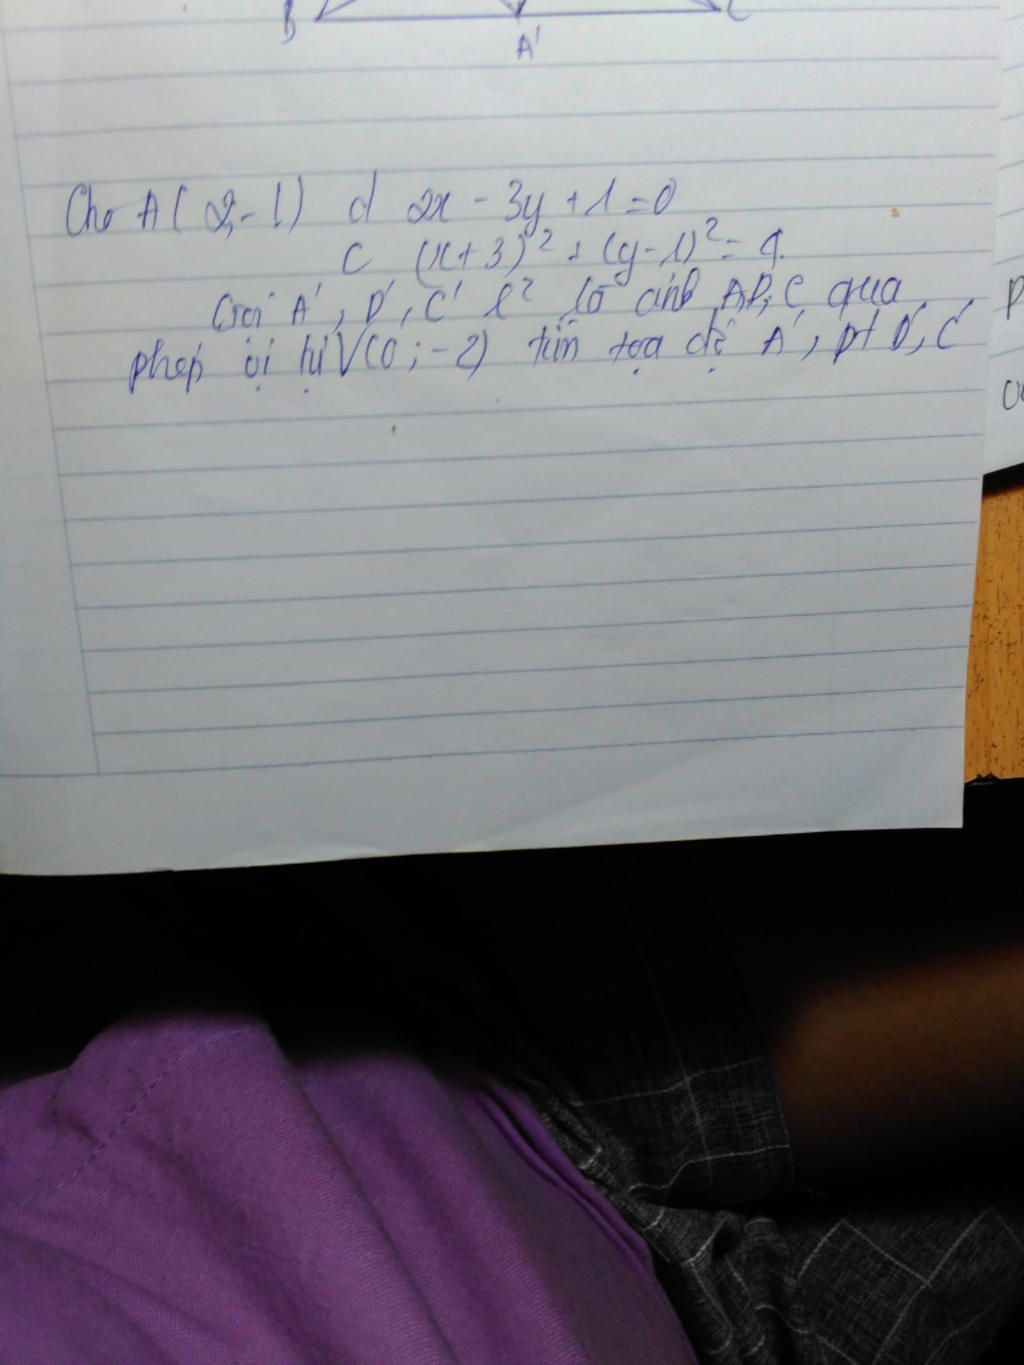 B C
A'
Cho A( 2,-1) d 2x - 3y + 1 = 0
C (x+3)² + (y-1)² = 9.
Gọi A', D', C' l² là ảnh A,D,C qua
phép vị tự V(O;-2) tìm tọa độ A', pt D', C'